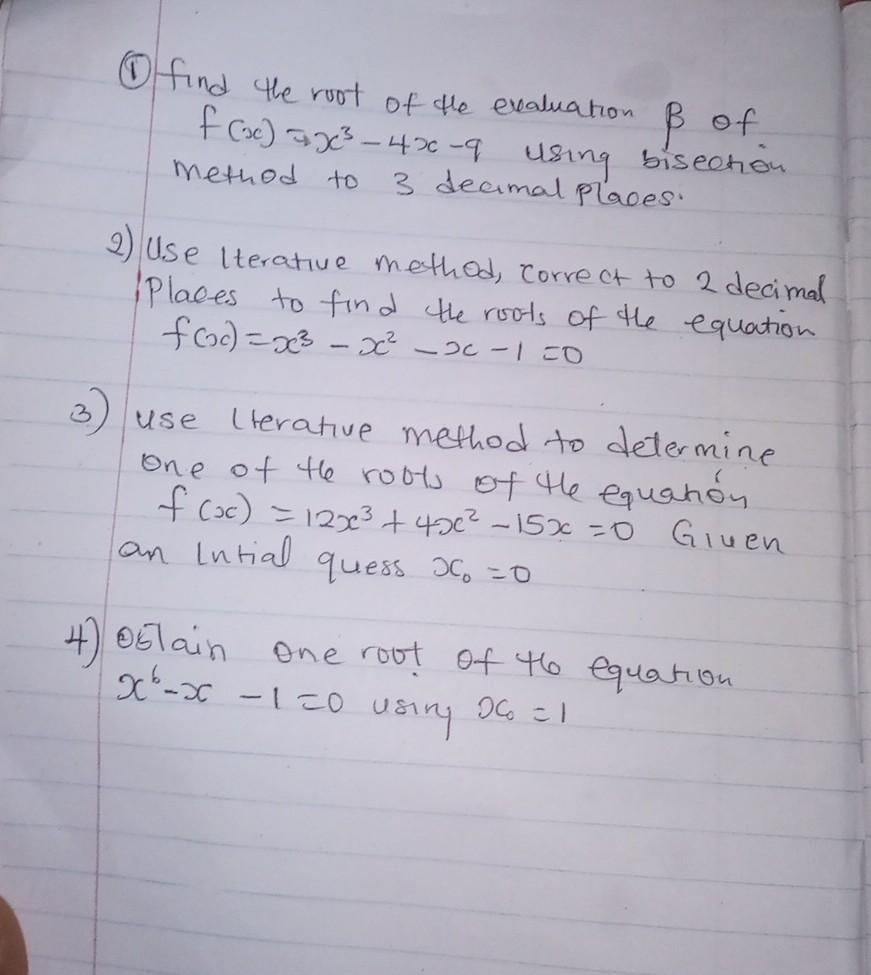 ① find the root of the evaluation β of
f(x) = x³ - 4x - 9 using bisection
method to 3 decimal places.
2) Use Iterative method, correct to 2 decimal
Places to find the roots of the equation
f(x) = x³ - x² - x - 1 = 0
3) use Iterative method to determine
one of the roots of the equation
f(x) = 12x³ + 4x² - 15x = 0 Given
an Intial guess x₀ = 0
4) Obtain one root of the equation
x⁶ - x - 1 = 0 using x₀ = 1